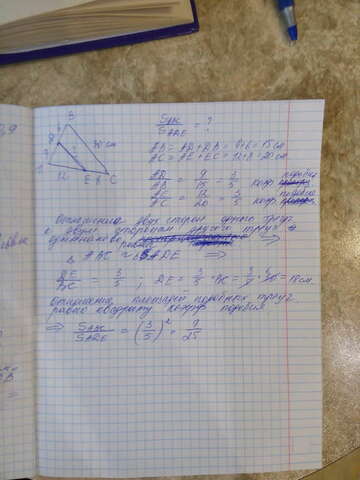 B
D
9
6
30 см
A
12
E 8 C
S ABC / S ADE = ?
AB = AD + DB = 9+6 = 15 см
AC = AE + EC = 12+8 = 20 см
AD / AB = 9 / 15 = 3 / 5 коэф. подобия
AE / AC = 12 / 20 = 3 / 5 коэф. подобия
Отношения двух сторон одного треуг.
к двум сторонам другого треуг-а
равны ⇒
Δ ABC ~ Δ ADE ⇒
DE / BC = 3 / 5 ; DE = 3 / 5 · BC = 3 / 5 · 30 = 18 см.
Отношения площадей подобных треуг.
равно квадрату коэф подобия
⇒ S ABC / S ADE = (3 / 5)² = 9 / 25